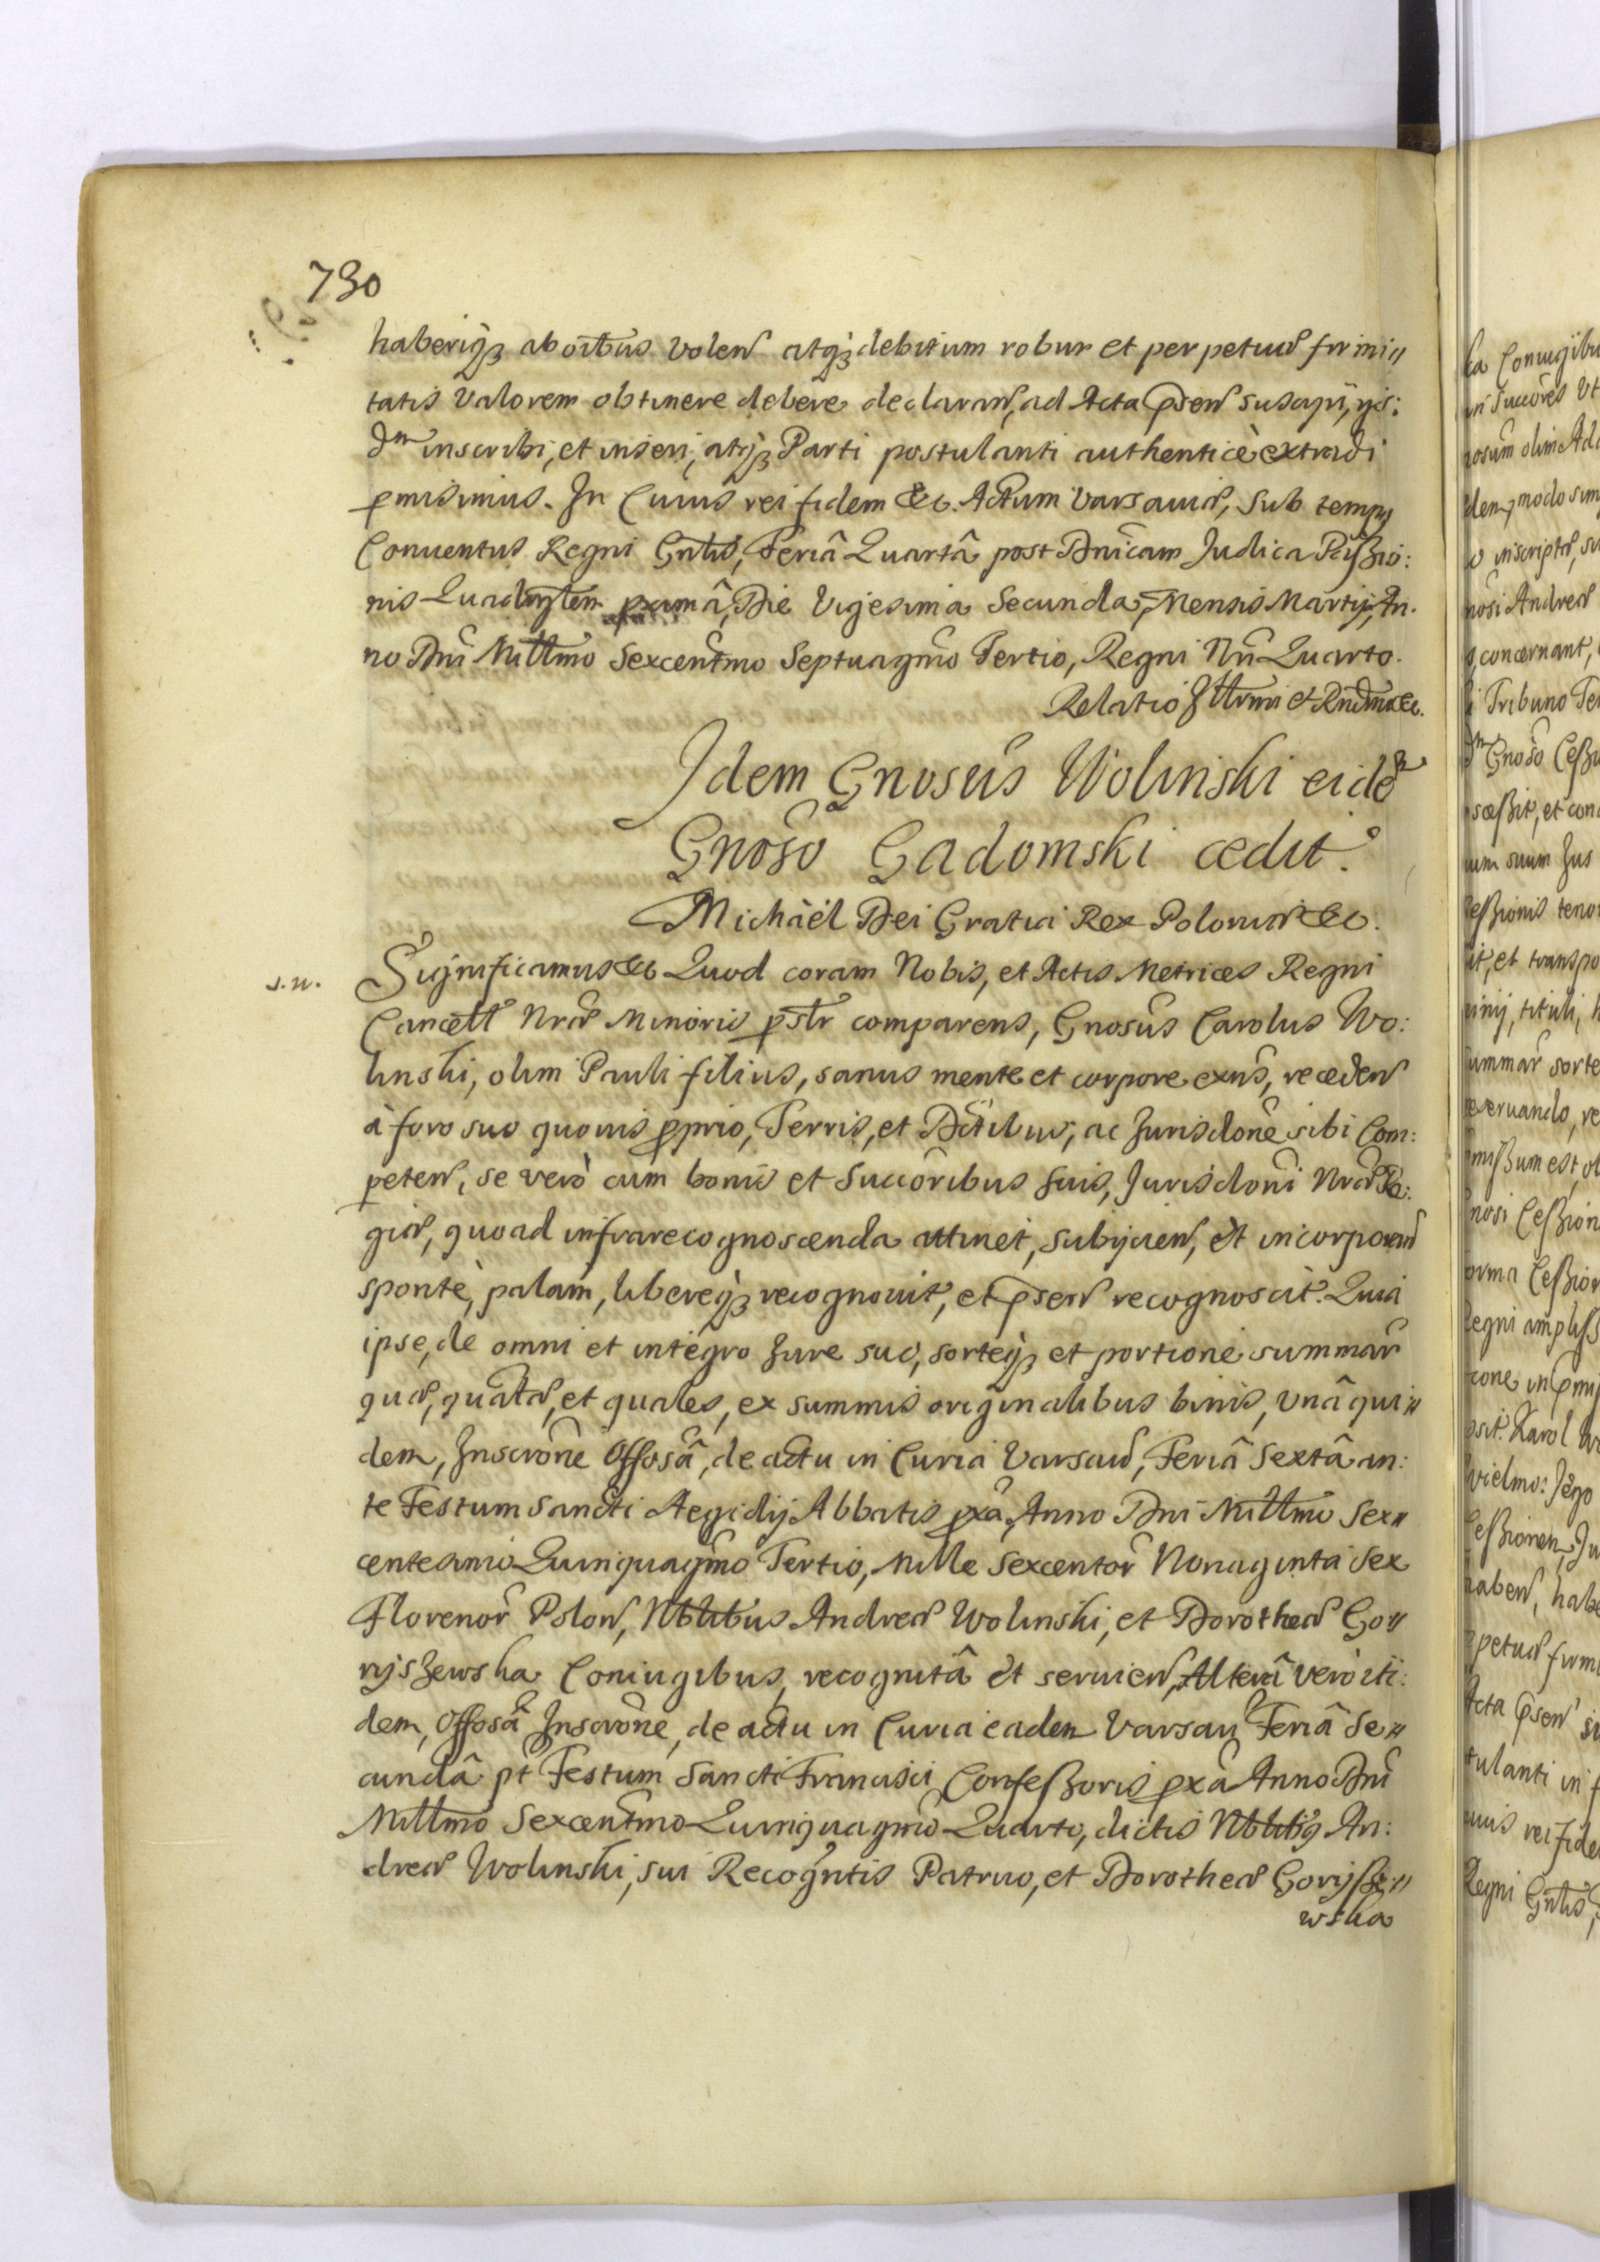 730
haberiq3 ab oibus volen atq3 debitum robur et perpetuæ firmi„
tatis valorem obtinere debere declaran, ad Acta psen suscipi, ijs:
dm inscribi, et inseri, atq3 Parti postulanti authenticè extradi
pmisimus. In Cuius rei fidem &c. Actum Varsaviæ, sub tempus
Conventus Regni Gnlis, Feriâ Quartâ post Dnicam Judica
nis pximâ, Die Vigesima Secunda, Mensis Martij, An.
no Dni Millmo Sexcentmo Septuagmo Tertio, Regni Nri Quarto.
Relatio Illrmi et Rndmi &c.
Idem Gnosus Wolinski eidem
Gnoso Gadomski cedit.
Michaël Dei Gratia Rex Poloniæ &c.
s. n. Significamus &c Quod coram Nobis, et Actis Metrices Regni
Cancell Nræ Minoris pslr comparens, Gnosus Carolus Wo:
linski, olim Pauli filius, sanus mente et corpore exns, receden
à foro suo quovis pprio, Terris, et Dctibus, ac Jurisdone sibi Com:
peten, se verò cum bonis et Succoribus suis, Jurisdoni Nræ Re:
giæ, quoad infrarecognoscenda attinet, subijcien, et incorporan
spontè, palam, libereq3 recognovit, et psen recognoscit. Quia
ipse, de omni et integro Jure suo, sorteq3 et portione summar
quæ, et quales, ex summis originalibus binis, unâ qui„
dem, Inscrone Offosâ, de actu in Curia Varsavi, Feriâ Sextâ an:
te Festum Sancti Aegidij Abbatis pxâ, Anno Dni Millmo Sex„
centesimo Quinquagmo Tertio, Mille Sexcentor Nonaginta Sex
Florenor Polon, Nblibus Andreæ Wolinski, et Dorotheæ Go„
ryszewska Coniugibus, recognitâ et servien, Alterâ verò iti:
dem, Offosâ Inscrone, de actu in Curia eadem Varsavi Feriâ Se„
cundâ pt Festum Sancti Francisci Confeßoris pxâ Anno Dni
Millmo Sexcentmo Quinquagmo Quarto, dictis Nblibus An:
dreæ Wolinski, sui Recogntis Patruo, et Dorotheæ Gorysze„
wska